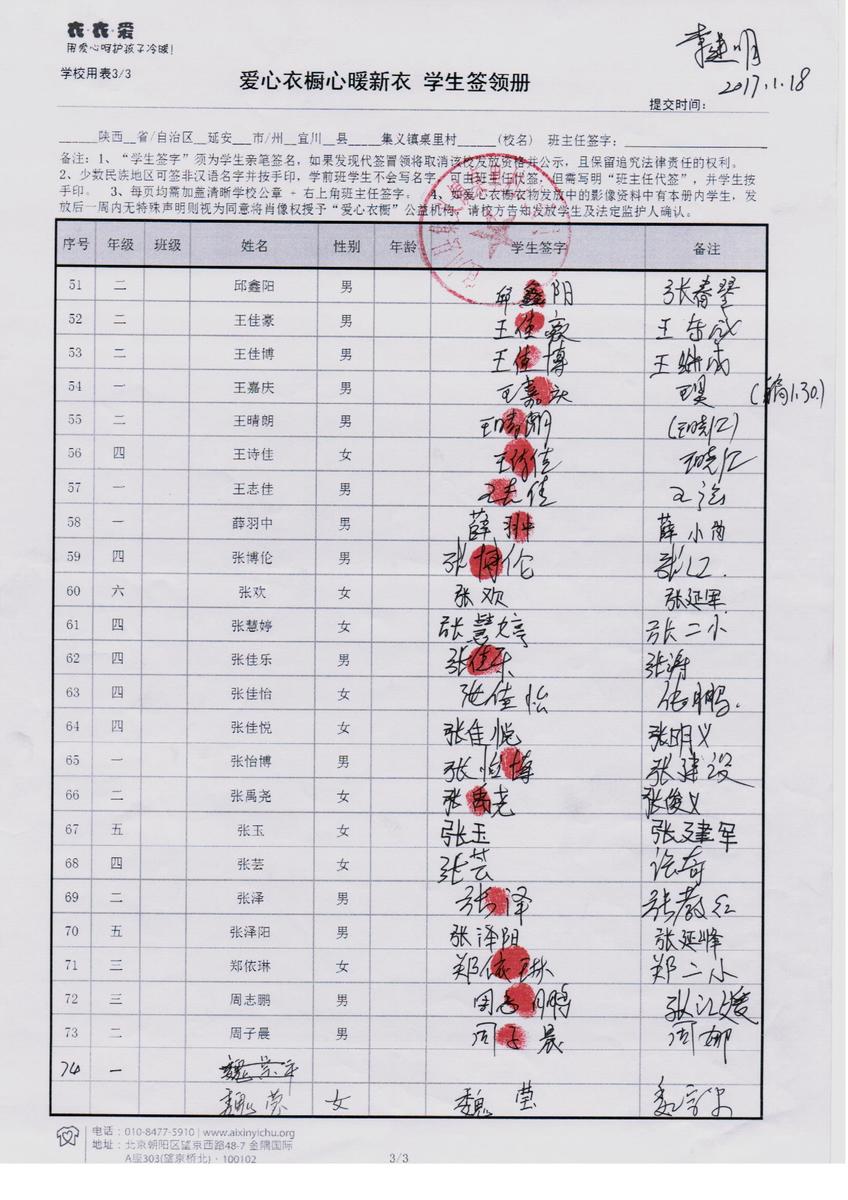 衣·衣·爱
用爱心呵护孩子冷暖!
学校用表3/3
爱心衣橱心暖新衣 学生签领册
2017.1.18
提交时间：
______陕西__省/自治区__延安___市/州__宜川__县____集义镇桌里村_____（校名） 班主任签字：
备注：1、“学生签字”须为学生亲笔签名，如果发现代签冒领将取消该校发放资格并公示，且保留追究法律责任的权利。
2、少数民族地区可签非汉语名字并按手印，学前班学生不会写名字，可由班主任代签，但需写明“班主任代签”，并学生按
手印。 3、每页均需加盖清晰学校公章 + 右上角班主任签字。 4、如爱心衣橱衣物发放中的影像资料中有本册内学生，发
放后一周内无特殊声明则视为同意将肖像权授予“爱心衣橱”公益机构，请校方告知发放学生及法定监护人确认。
序号 年级 班级 姓名 性别 年龄 学生签字 备注
51 二 邱鑫阳 男 邱鑫阳
52 二 王佳豪 男 王佳豪
53 二 王佳博 男 王佳博
54 一 王嘉庆 男 王嘉庆
55 二 王晴朗 男 王晴朗 (王晓红)
56 四 王诗佳 女 王诗佳 王晓红
57 一 王志佳 男 王志佳
58 一 薛羽中 男 薛羽中
59 四 张博伦 男 张博伦 张红
60 六 张欢 女 张欢 张延军
61 四 张慧婷 女 张慧婷 张二小
62 四 张佳乐 男 张佳乐 张涛
63 四 张佳怡 女 张佳怡 张鹏
64 四 张佳悦 女 张佳悦 张明义
65 一 张怡博 男 张怡博 张建设
66 二 张禹尧 女 张禹尧 张俊义
67 五 张玉 女 张玉 张建军
68 四 张芸 女 张芸
69 二 张泽 男 张泽 张教红
70 五 张泽阳 男 张泽阳 张延峰
71 三 郑依琳 女 郑依琳 郑二小
72 三 周志鹏 男 周志鹏 张江媛
73 二 周子晨 男 周子晨 周娜
74 一
魏莹 女 魏莹
电话：010-8477-5910 | www.aixinyichu.org
地址：北京朝阳区望京西路48-7 金隅国际
A座303(望京桥北)·100102
3/3